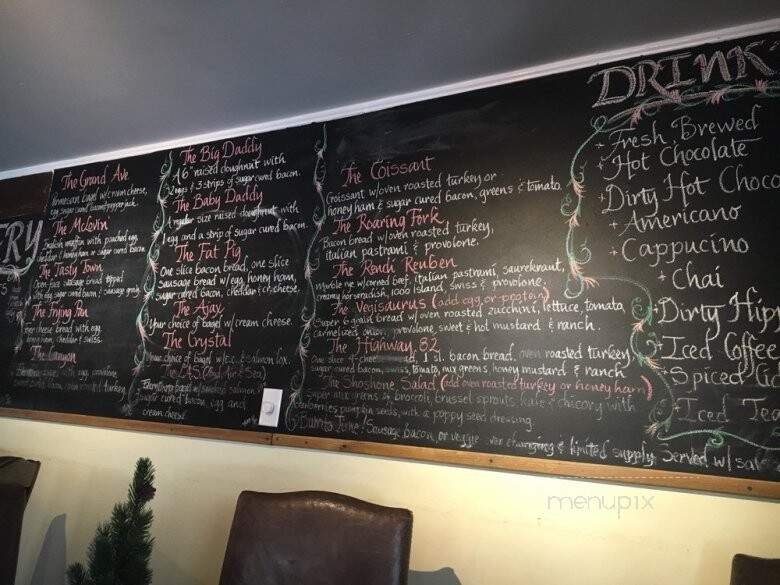 ERY
The Grand Ave
Parmesan bagel w/ cream cheese,
egg, sugar cured bacon, pepperjack.
The McLovin
English muffin with poached egg,
cheddar, honey ham or sugar cured bacon.
The Tasty Town
Open face sausage bread topped
with egg, sugar cured bacon, & sausage gravy
The Frying Pan
beer cheese bread with egg,
honey ham, cheddar & swiss.
The Canyon
turkey
The Big Daddy
A 6" raised doughnut with
2 eggs & 3 strips of sugar cured bacon.
The Baby Daddy
A regular size raised doughnut with
1 egg and a strip of sugar cured bacon.
The Fat Pig
One slice bacon bread, one slice
sausage bread w/ egg, honey ham,
sugar cured bacon, cheddar & cr.cheese.
The Ajax
Your choice of bagel w/ cream cheese.
The Crystal
Your choice of bagel w/ c.c. & salmon lox.
The LAS (Land Air & Sea)
smoked salmon,
sugar cured bacon, egg and
cream cheese
The Coissant
Croissant w/ oven roasted turkey or
honey ham & sugar cured bacon, greens & tomato.
The Roaring Fork
Bacon bread w/ oven roasted turkey,
italian pastrami & provolone.
The Rendi Reuben
Marble rye w/ corned beef, italian pastrami, saurekraut,
creamy horseradish, 1000 island, swiss & provolone.
The Vegisaurus (add egg or protein)
Super 6 grain bread w/ oven roasted zucchini, lettuce, tomato,
carmelized onion, provolone, sweet & hot mustard & ranch.
The Highway 82
One slice of cheese bread, 1 sl. bacon bread, oven roasted turkey,
sugar cured bacon, swiss, tomato, mix greens, honey mustard & ranch
The Shoshone Salad (add oven roasted turkey or honey ham)
Super mix greens of broccoli, brussel sprouts, kale & chicory with
cranberries, pumpkin seeds, with a poppy seed dressing
Burrito Time! Sausage, bacon, or veggie ever changing & limited supply. Served w/ sals
DRINK
Fresh Brewed
Hot Chocolate
Dirty Hot Choco
Americano
Cappucino
Chai
Dirty Hipp
Iced Coffee
Spiced Cid
Iced Tea
menupix